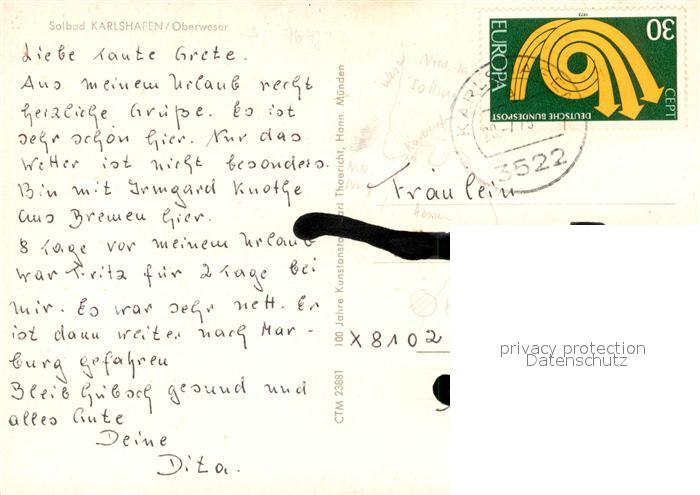 Solbad KARLSHAFEN/Oberweser
Liebe Tante Grete.
Aus meinem Urlaub recht
herzliche Grüße. Es ist
sehr schön hier. Nur das
Wetter ist nicht besonders.
Bin mit Irmgard Knothe
aus Bremen hier.
8 Tage vor meinem Urlaub
war Fritz für 2 Tage bei
mir. Es war sehr nett. Er
ist dann weiter nach Mar-
burg gefahren
Bleib hübsch gesund und
alles Gute
Deine
Dita.
CTM 23881 100 Jahre Kunstanstalt Karl Thoericht, Hann. Münden
1973
EUROPA
30
CEPT
DEUTSCHE BUNDESPOST
3522
Fräulein
X8102
privacy protection
Datenschutz